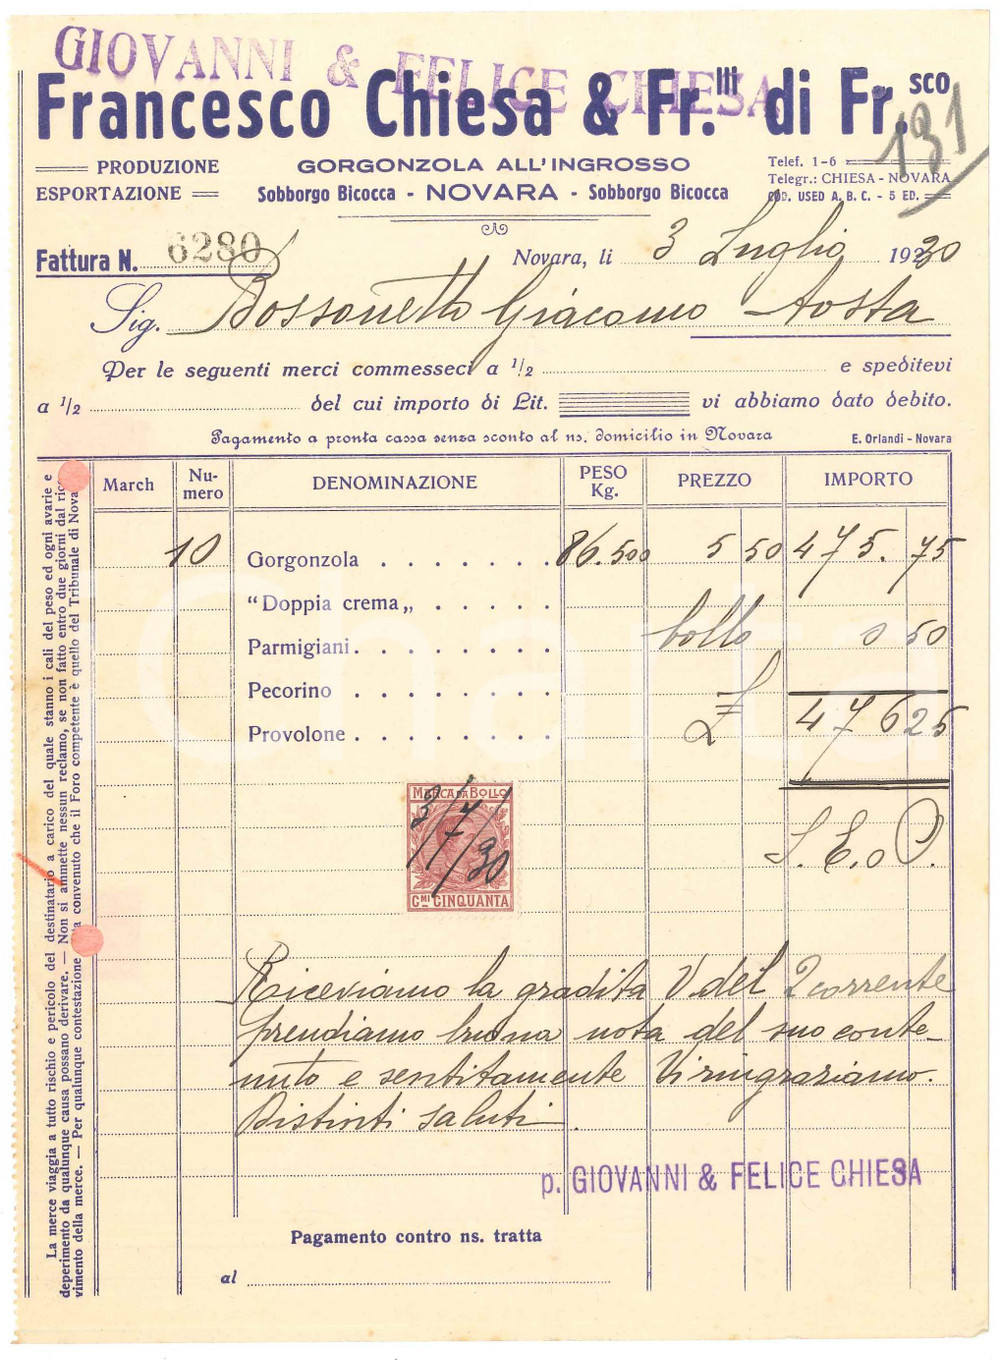 GIOVANNI & FELICE CHIESA
Francesco Chiesa & Fr.lli di Fr.sco
131
PRODUZIONE
ESPORTAZIONE
GORGONZOLA ALL'INGROSSO
Sobborgo Bicocca - NOVARA - Sobborgo Bicocca
Telef. 1-6
Telegr.: CHIESA - NOVARA
COD. USED A. B. C. - 5 ED.
Fattura N. 6280
Novara, li 3 Luglio 1930
Sig. Bossonetto Giacomo Aosta
Per le seguenti merci commesseci a 1/2 e speditevi
a 1/2 del cui importo di Lit. vi abbiamo dato debito.
Pagamento a pronta cassa senza sconto al ns. domicilio in Novara
E. Orlandi - Novara
March Numero DENOMINAZIONE PESO Kg. PREZZO IMPORTO
10 Gorgonzola 86.500 5 50 475. 75
"Doppia crema„
Parmigiani bollo 0 50
Pecorino
Provolone £ 476 25
MARCA DA BOLLO
3/7/30
CMI CINQUANTA
S. E. o O.
Riceviamo la gradita V. del 2 corrente
prendiamo buona nota del suo conte-
nuto e sentitamente Vi ringraziamo.
Distinti saluti.
p. GIOVANNI & FELICE CHIESA
Pagamento contro ns. tratta
al
La merce viaggia a tutto rischio e pericolo del destinatario a carico del quale stanno i cali del peso ed ogni avarie e
deperimento da qualunque causa possano derivare. — Non si ammette nessun reclamo, se non fatto entro due giorni dal rice
vimento della merce. — Per qualunque contestazione convenuto che il Foro competente è quello del Tribunale di Nova